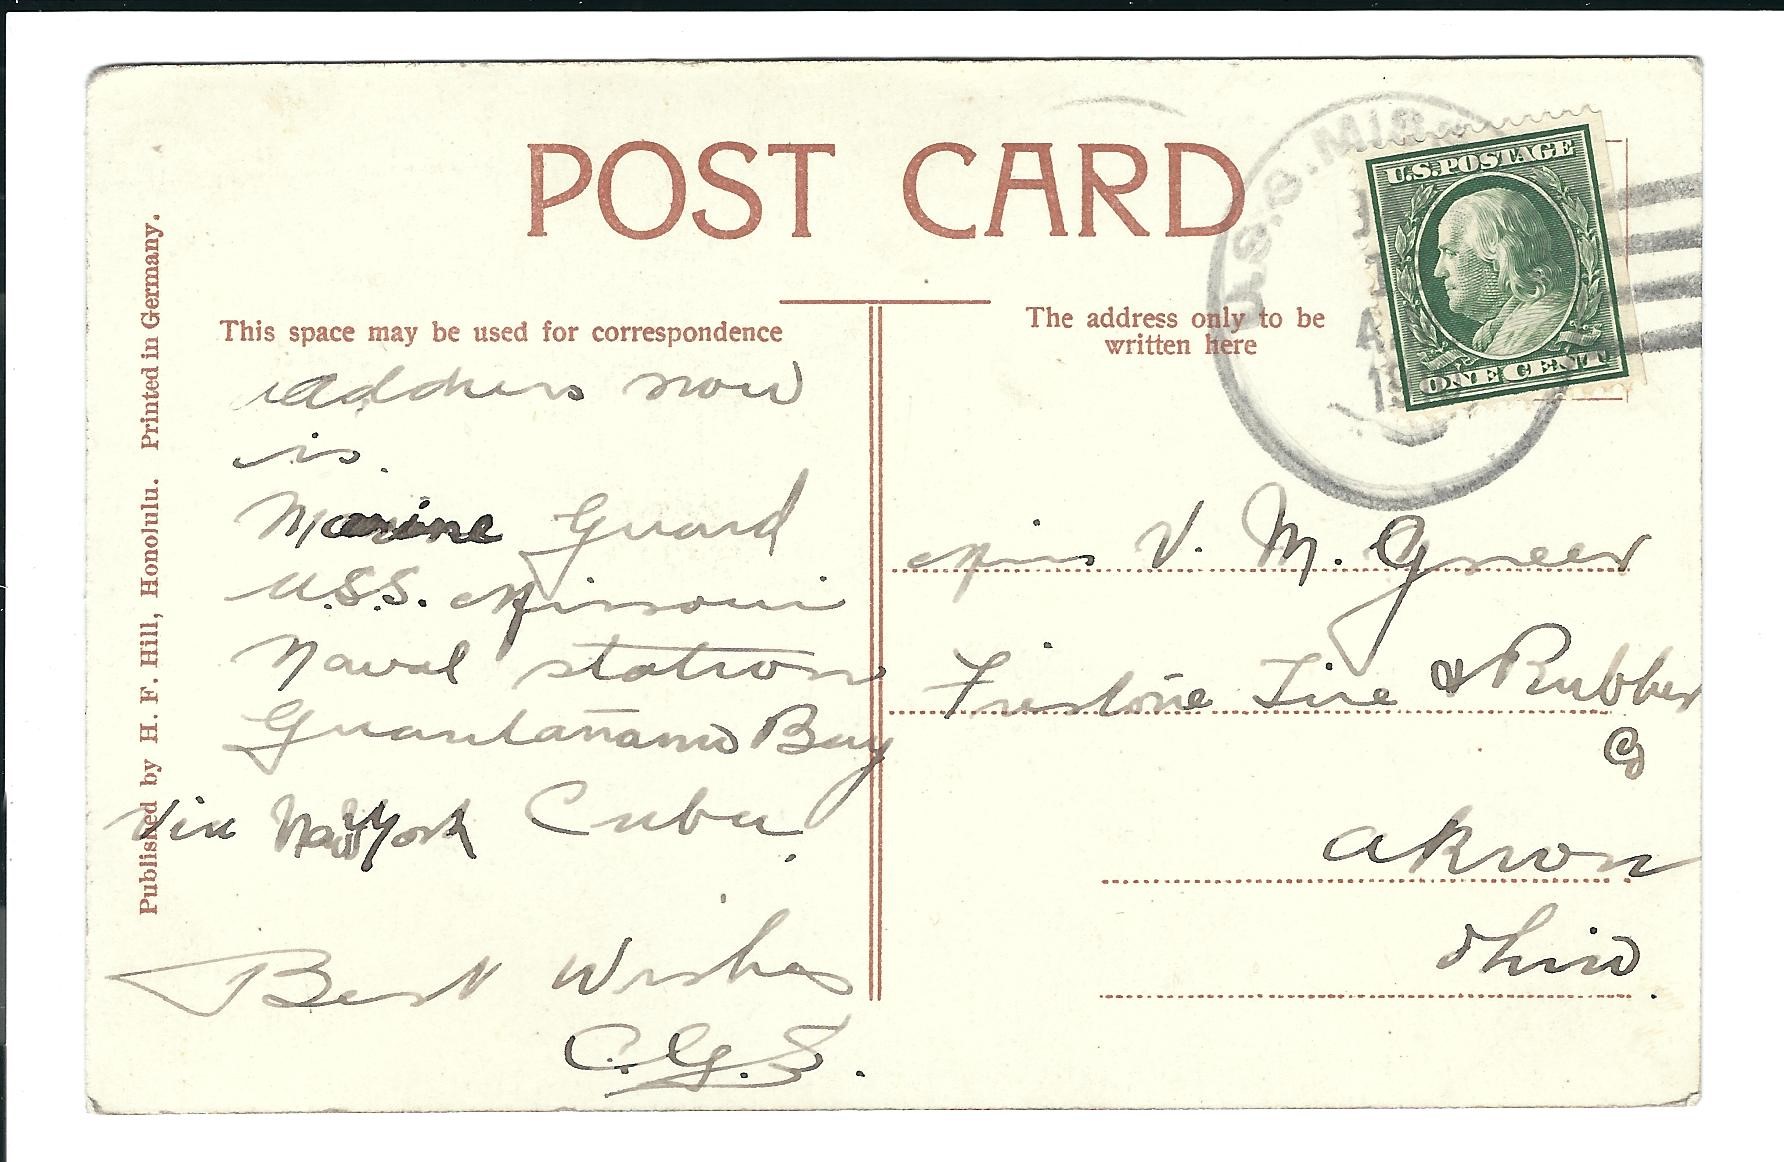 POST CARD
Published by H. F. Hill, Honolulu. Printed in Germany.
This space may be used for correspondence
Address now
is.
Marine Guard
U.S.S. Missouri
Naval station
Guantanamo Bay
Via New York Cuba.
Best Wishes
C.G.S.
The address only to be
written here
U.S.S. MIS
A
19
U.S. POSTAGE
ONE CENT
Miss V. M. Greer
Firestone Tire & Rubber
Co
Akron
Ohio.